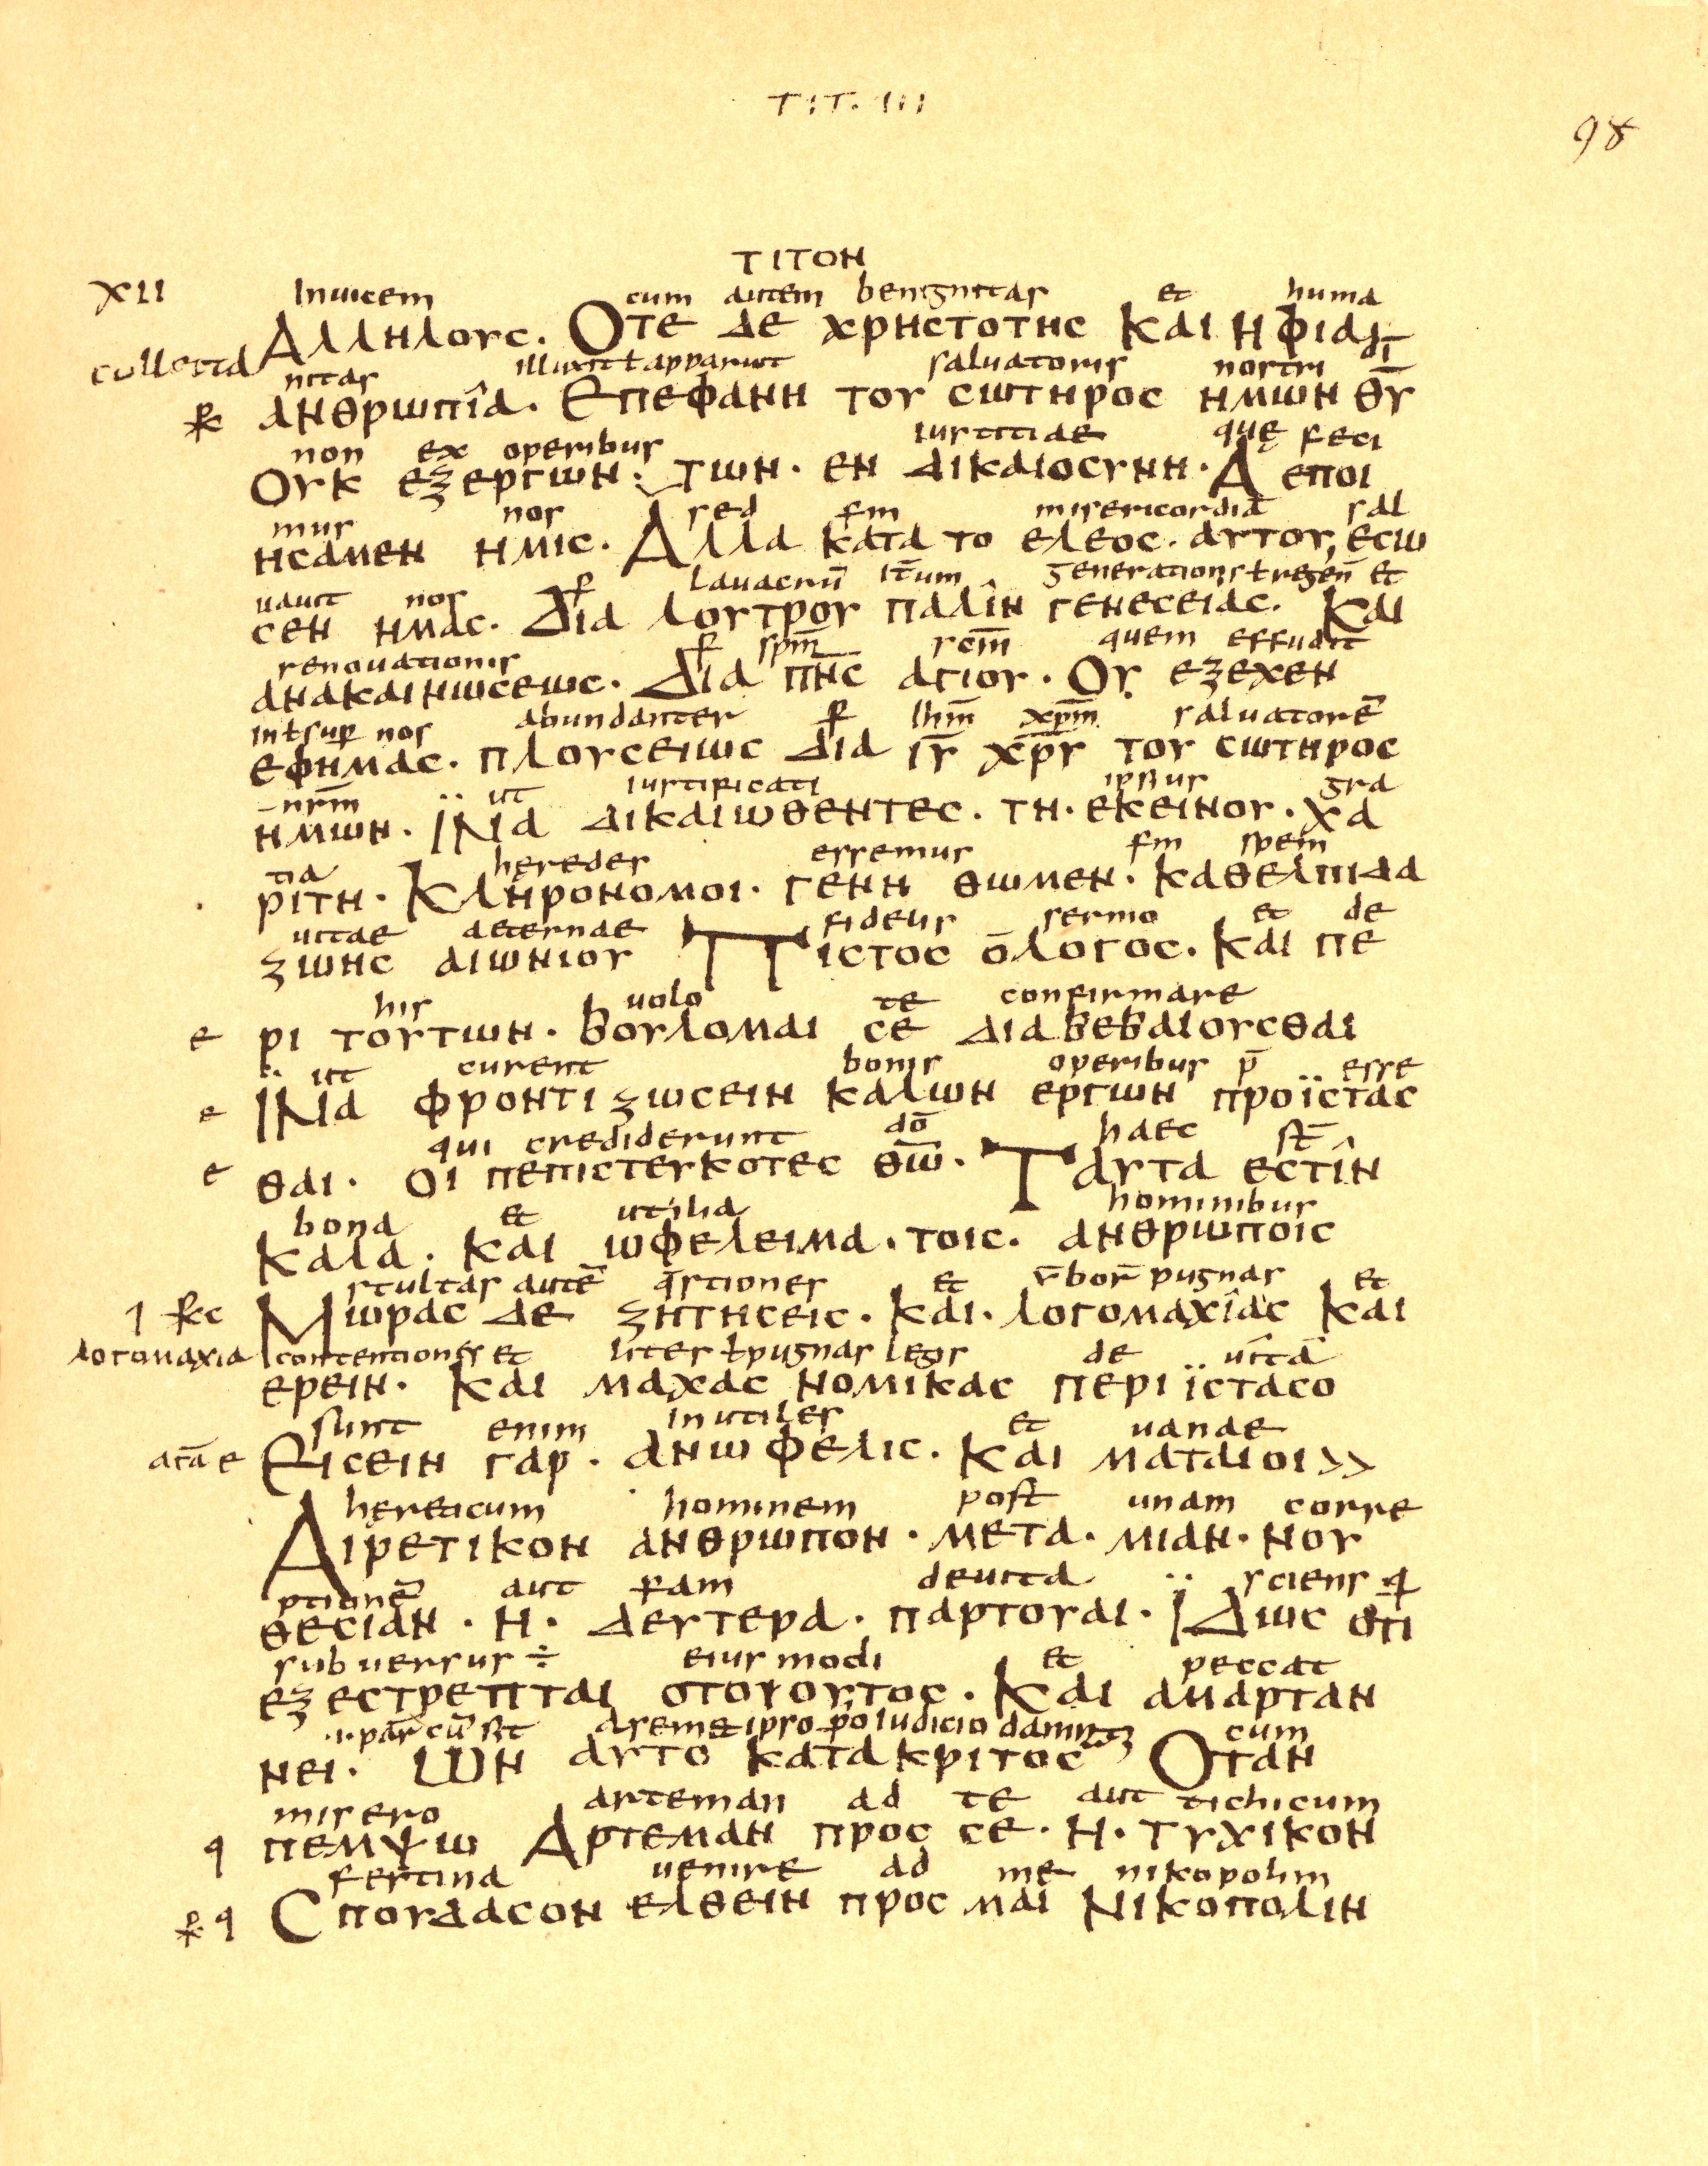 TIT. III
98
ΤΙΤΟΝ
XII Inuicem cum autem benignitas et huma
Αλληλουc. Οτε δε χρηcτοτηc και η φιλα
collecta nitas illuxit ł apparuit saluatoris nostri di
ανθρωπîα. Επεφανη του cωτηροc ημων θ̅υ̅
non ex operibus iustitiae quę feci
Ουκ εξεργων. των. εν δικαιοcυνη. Α εποι
mus nos sed s̅m misericordia̅ sal
ηcαμεν ημιc. Αλλα κατα το ελεοc. αυτου, εcω
uauit nos p lauacru̅ it̅um generationis ł regen̅ et
cεν ημαc. Δια λουτρου παλîν γενεcειαc. Και
renouationis p sp̅m̅ sc̅m̅ quem effudit
ανακαινωcεωc. Δια π̅ν̅c̅ αγιου. Ου εξεχεν
in ł sup nos abundanter p ih̅m̅ xp̅m̅ saluatore̅
εφημαc. πλουcειωc δια ι̅υ̅ χ̅ρ̅υ̅ του cωτηροc
nr̅m̅ ut iustificati ipsius gra
ημων. ϊΝα δικαιωθεντεc. τη. εκεινου. χα
tia heredes essemus s̅m spem
ριτη. Κληρονομοι. γενη θωμεν. καθελπιδα
uitae aeternae fidelis sermo et de
ζωηc αιωνιου Πιcτοc ο λογοc. Και πε
his uolo te confirmare
ε ρι τουτων. βουλομαι cε διαβεβαιουcθαι
ut curent bonis operibus p̅ esse
ε ϊΝα φροντιζωcειν καλων εργων προϊcταc
qui crediderunt do̅ haec st̅
ε θαι. οι πεπιcτευκοτεc θ̅ω̅. Ταυτα εcτîν
bona et utilia hominibus
Καλα. και ωφελειμα. τοιc. ανθρωποιc
stultas aute̅ q̅stiones et v̅bor̅ pugnas et
Μωραc δε ζητηcειc. Και. λογομαχîαc Και
λογομαχια contentiones et lites ł pugnas legis de uita̅
ερειν. Και μαχαc νομικαc περι ϊcταcο
sunt enim inutiles et uanae
Ειcειν γαρ. ανωφελιc. Και ματαιοι >>
hereticum hominem post unam corre
Αιρετικον ανθρωπον. μετα. μιαν. νου
ptione̅ aut deuita sciens
θεcιαν. Η. δευτερα. παρτουαι. ϊΔωc οτι
subuersus ÷ eiusmodi et peccat
εξεcτρεπται οτοιουτοc. Και αμαρταν
cum
νει. ΩΝ αυτο κατακριτοc Οταν
missero arteman ad te aut tichicum
πεμψω Αρτεμαν προc cε. Η. τυχικον
festina uenire ad me nikopolim
Cπουδαcον ελθειν προc μαι Νικοπολιν